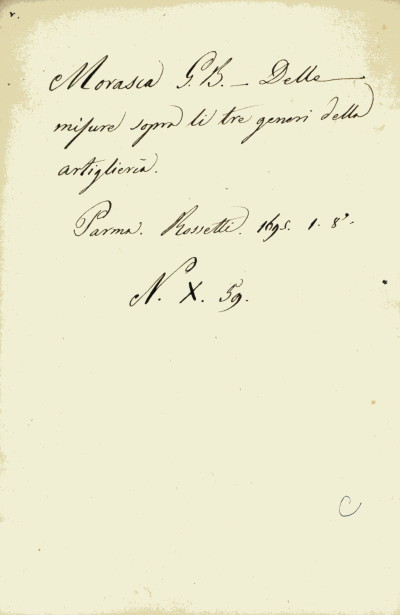 Morasca G. B. — Delle
misure sopra li tre generi della
artiglieria.
Parma. Rossetti. 1695. 1. 8°.
N. X. 59.
C